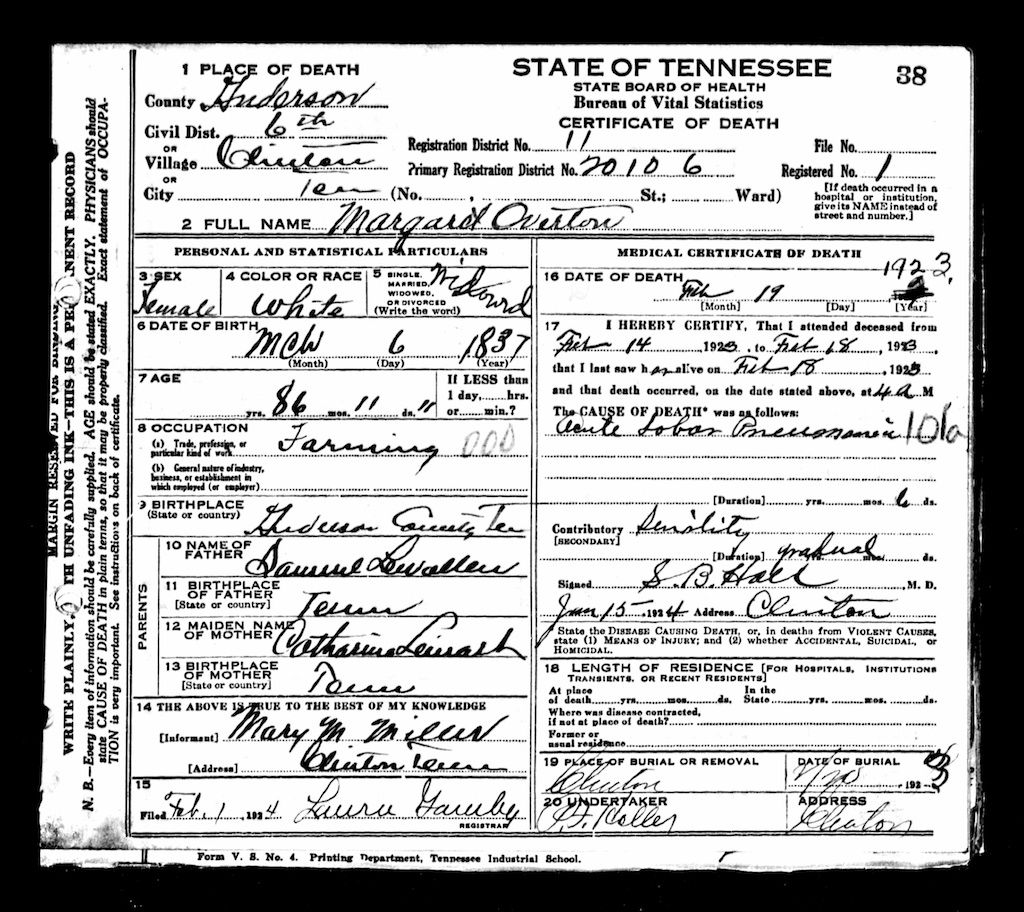 STATE OF TENNESSEE
STATE BOARD OF HEALTH
Bureau of Vital Statistics
CERTIFICATE OF DEATH
38
1 PLACE OF DEATH
County Anderson
Civil Dist. 6th
OR
Village Clinton
OR
City Ten (No. St.; Ward)
Registration District No. 11 File No.
Primary Registration District No. 20106 Registered No. 1
[If death occurred in a
hospital or institution,
give its NAME instead of
street and number.]
2 FULL NAME Margard Overton
PERSONAL AND STATISTICAL PARTICULARS
3 SEX Female
4 COLOR OR RACE White
5 SINGLE, MARRIED, WIDOWED, OR DIVORCED (Write the word) Widowd
6 DATE OF BIRTH Mch 6 1837
(Month) (Day) (Year)
7 AGE
yrs. 86 mos. 11 ds. 11
If LESS than
1 day, hrs.
or min.?
8 OCCUPATION
(a) Trade, profession, or
particular kind of work Farming 000
(b) General nature of industry,
business, or establishment in
which employed (or employer)
9 BIRTHPLACE
(State or country) Anderson County Ten
PARENTS
10 NAME OF
FATHER Samuel Levallen
11 BIRTHPLACE
OF FATHER
[State or country] Tenn
12 MAIDEN NAME
OF MOTHER Catharine
13 BIRTHPLACE
OF MOTHER
[State or country] Tenn
14 THE ABOVE IS TRUE TO THE BEST OF MY KNOWLEDGE
[Informant] Mary M Miller
[Address] Clinton Tenn
15
Filed Feb. 1 1924 Laura Gamby
REGISTRAR
MEDICAL CERTIFICATE OF DEATH
16 DATE OF DEATH Feb 19 1923
[Month] [Day] [Year]
17 I HEREBY CERTIFY, That I attended deceased from
Feb 14 1923, to Feb 18, 1923.
that I last saw her alive on Feb 18, 1923
and that death occurred, on the date stated above, at 4 a M
The CAUSE OF DEATH* was as follows:
Acute Lobar Pneumonia 101a
[Duration] yrs. mos. 6 ds.
Contributory Senility
[SECONDARY]
[Duration] gradual ds.
Signed S. B. Hall M. D.
Jan 15 1924 Address Clinton
State the DISEASE CAUSING DEATH, or, in deaths from VIOLENT CAUSES,
state (1) MEANS OF INJURY; and (2) whether ACCIDENTAL, SUICIDAL, or
HOMICIDAL.
18 LENGTH OF RESIDENCE [FOR HOSPITALS, INSTITUTIONS
TRANSIENTS, OR RECENT RESIDENTS]
At place In the
of death yrs. mos. ds. State yrs. mos. ds.
Where was disease contracted,
if not at place of death?
Former or
usual residence
19 PLACE OF BURIAL OR REMOVAL DATE OF BURIAL
Clinton 1923
20 UNDERTAKER ADDRESS
Clinton
Form V. S. No. 4. Printing Department, Tennessee Industrial School.
MARGIN RESERVED FOR BINDING
WRITE PLAINLY, WITH UNFADING INK—THIS IS A PERMANENT RECORD
N. B.—Every item of information should be carefully supplied. AGE should be stated EXACTLY. PHYSICIANS should
state CAUSE OF DEATH in plain terms, so that it may be properly classified. Exact statement of OCCUPA-
TION is very important. See instructions on back of certificate.